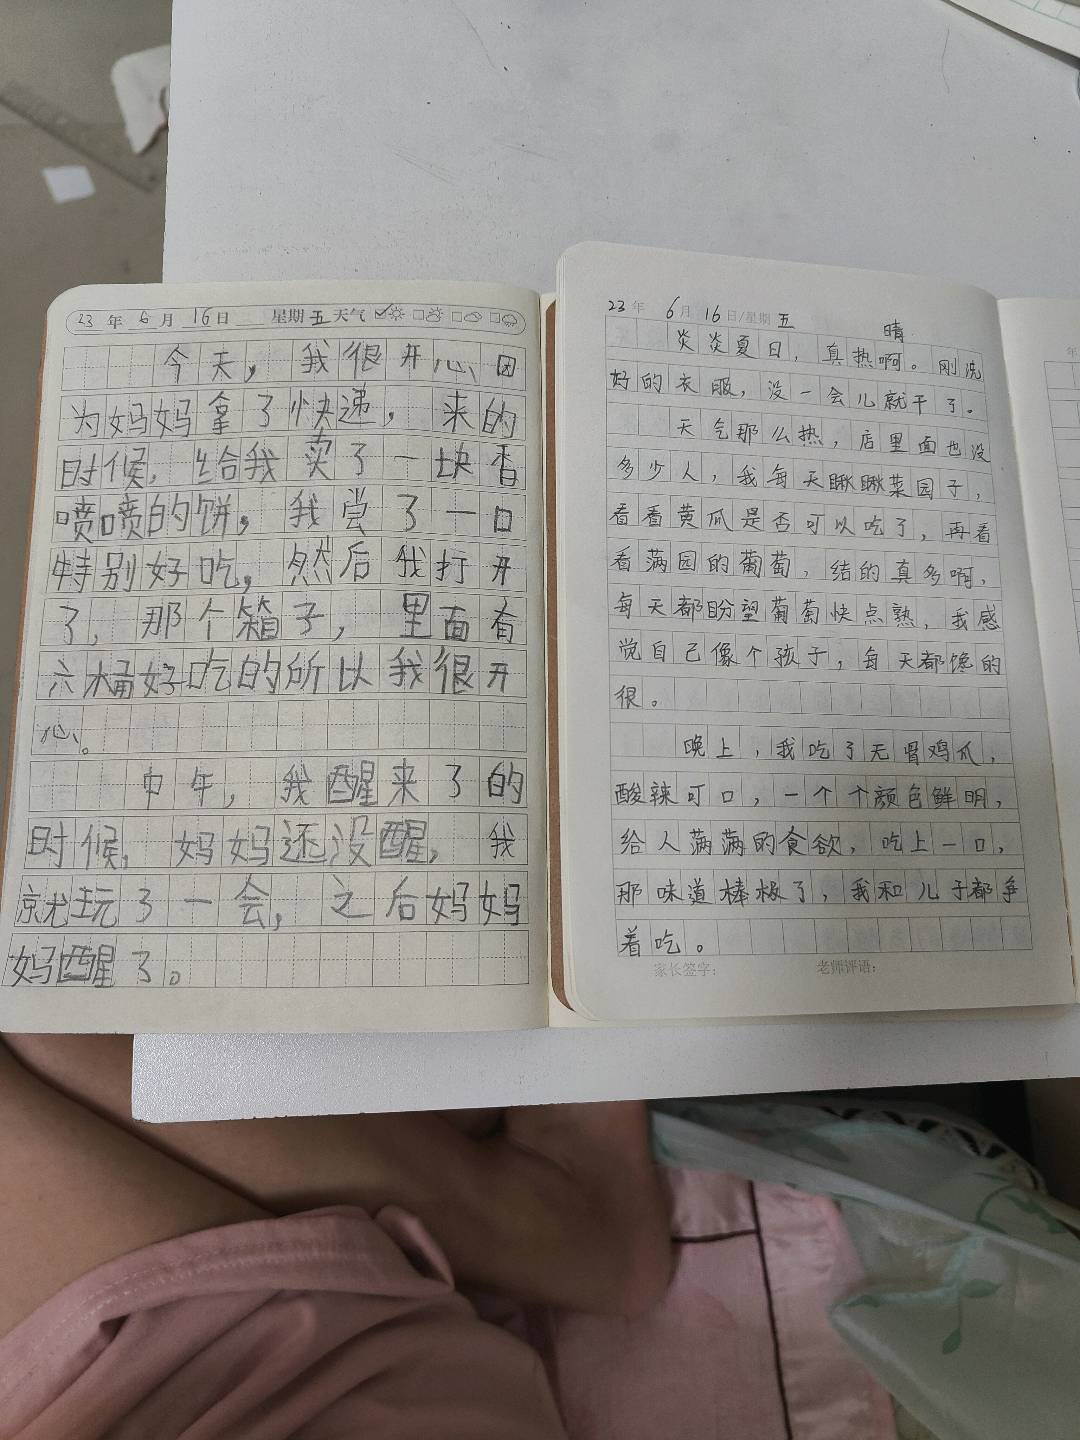 23 年 6 月 16 日 星期 五 天气
今天，我很开心因
为妈妈拿了快递，来的
时候，给我卖了一块香
喷喷的饼，我尝了一口
特别好吃，然后我打开
了，那个箱子，里面有
六桶好吃的所以我很开
心。
中午，我醒来了的
时候，妈妈还没醒，我
就玩了一会，之后妈妈
妈醒了。
23 年 6 月 16 日/星期 五 晴
炎炎夏日，真热啊。刚洗
好的衣服，没一会儿就干了。
天气那么热，店里面也没
多少人，我每天瞅瞅菜园子，
看看黄瓜是否可以吃了，再看
看满园的葡萄，结的真多啊，
每天都盼望葡萄快点熟，我感
觉自己像个孩子，每天都馋的
很。
晚上，我吃了无骨鸡爪，
酸辣可口，一个个颜色鲜明，
给人满满的食欲，吃上一口，
那味道棒极了，我和儿子都争
着吃。
家长签字： 老师评语：